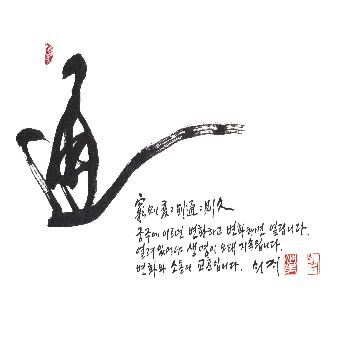 通
窮則変 変則通 通則久
궁극에 이르면 변화하고 변화하면 열립니다.
열려있어야 생명이 오래 지속됩니다.
변화와 소통의 교훈입니다.